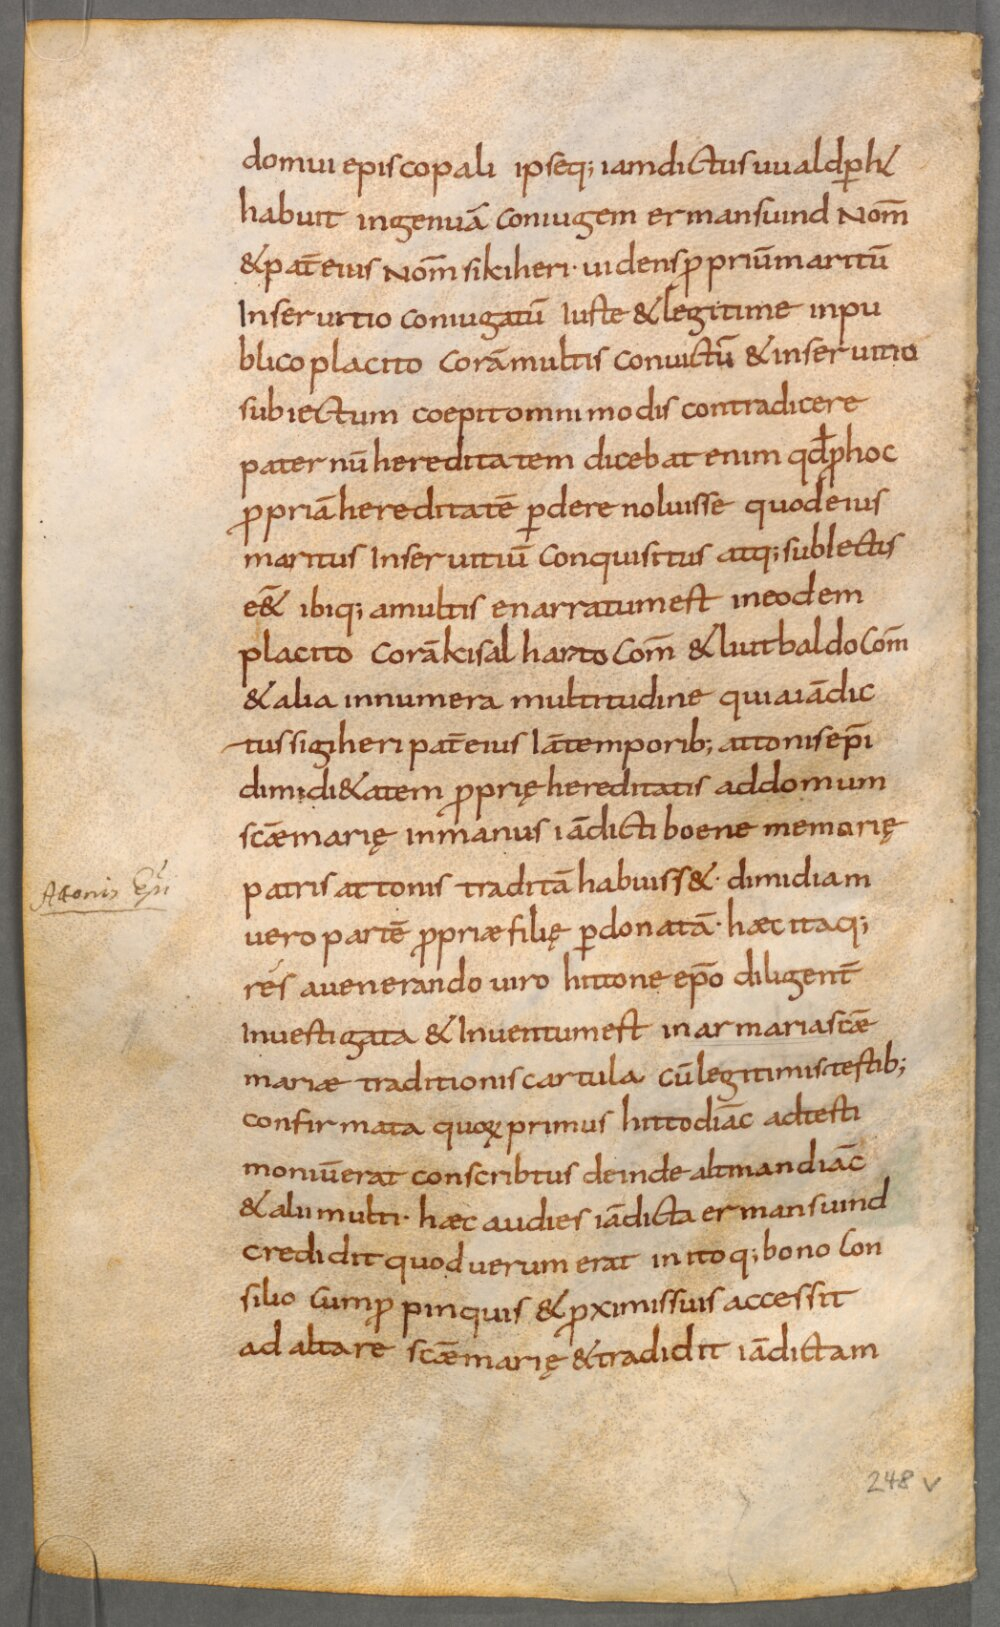 domui episcopali ipseq; iamdictus uualdꝑh̅
habuit ingenuā coniugem ermansuind Nom̅
& pat̄ eius Nom̅ sikiheri · uidens ꝓpriū maritū
Inseruitio coniugatū Iuste & legitime inpu
blico placito corā multis conuictū & inseruitio
subiectum coepit omnimodis contradicere
paternū hereditatem dicebat enim qđ ꝓ hoc
ꝓpriā hereditatē ꝑdere noluisse quod eius
maritus Inseruitiū conquisitus atq; sublectus
e&̄ ibiq; amultis enarratum est ineodem
placito Corā kisalharto Com̅ & liutbaldo Com̅
& alia innumera multitudine quia iādic
tus sigiheri pat̄ eius Iā temporib; attonis ep̄i
dimidi&atem ꝓprię hereditatis addomum
sc̄æ marię inmanus iādicti boene memorię
patris attonis traditā habuiss& · dimidiam
uero partē ꝓpriæ filię ꝑdonatā · hæc itaq;
res auenerando uiro hittone ep̄o diligent̄
Inuestigata & Inuentum est in armaria sc̄æ
mariæ traditionis cartula cū legitimis testib;
confirmata quoꝝ primus hitto diāc adtesti
moniū erat conscribtus deinde altman diāc
& alii multi · hæc audies iādicta ermansuind
credidit quod uerum erat initoq; bono Con
silio Cum ꝓpinquis & ꝓximis suis accessit
ad altare sc̄æ marię & tradidit iādictam
Attonis Ep̄i
248 v